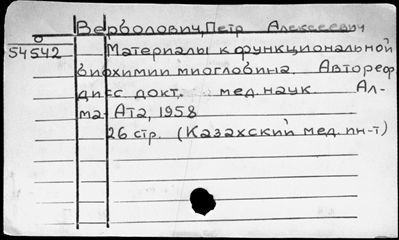 Верболович, Петр Алексеевич
54542 Материалы к функциональной
биохимии миоглобина. Автореф
дисс докт. мед. наук. Ал-
ма-Ата, 1958
26 стр. (Казахский мед. ин-т)